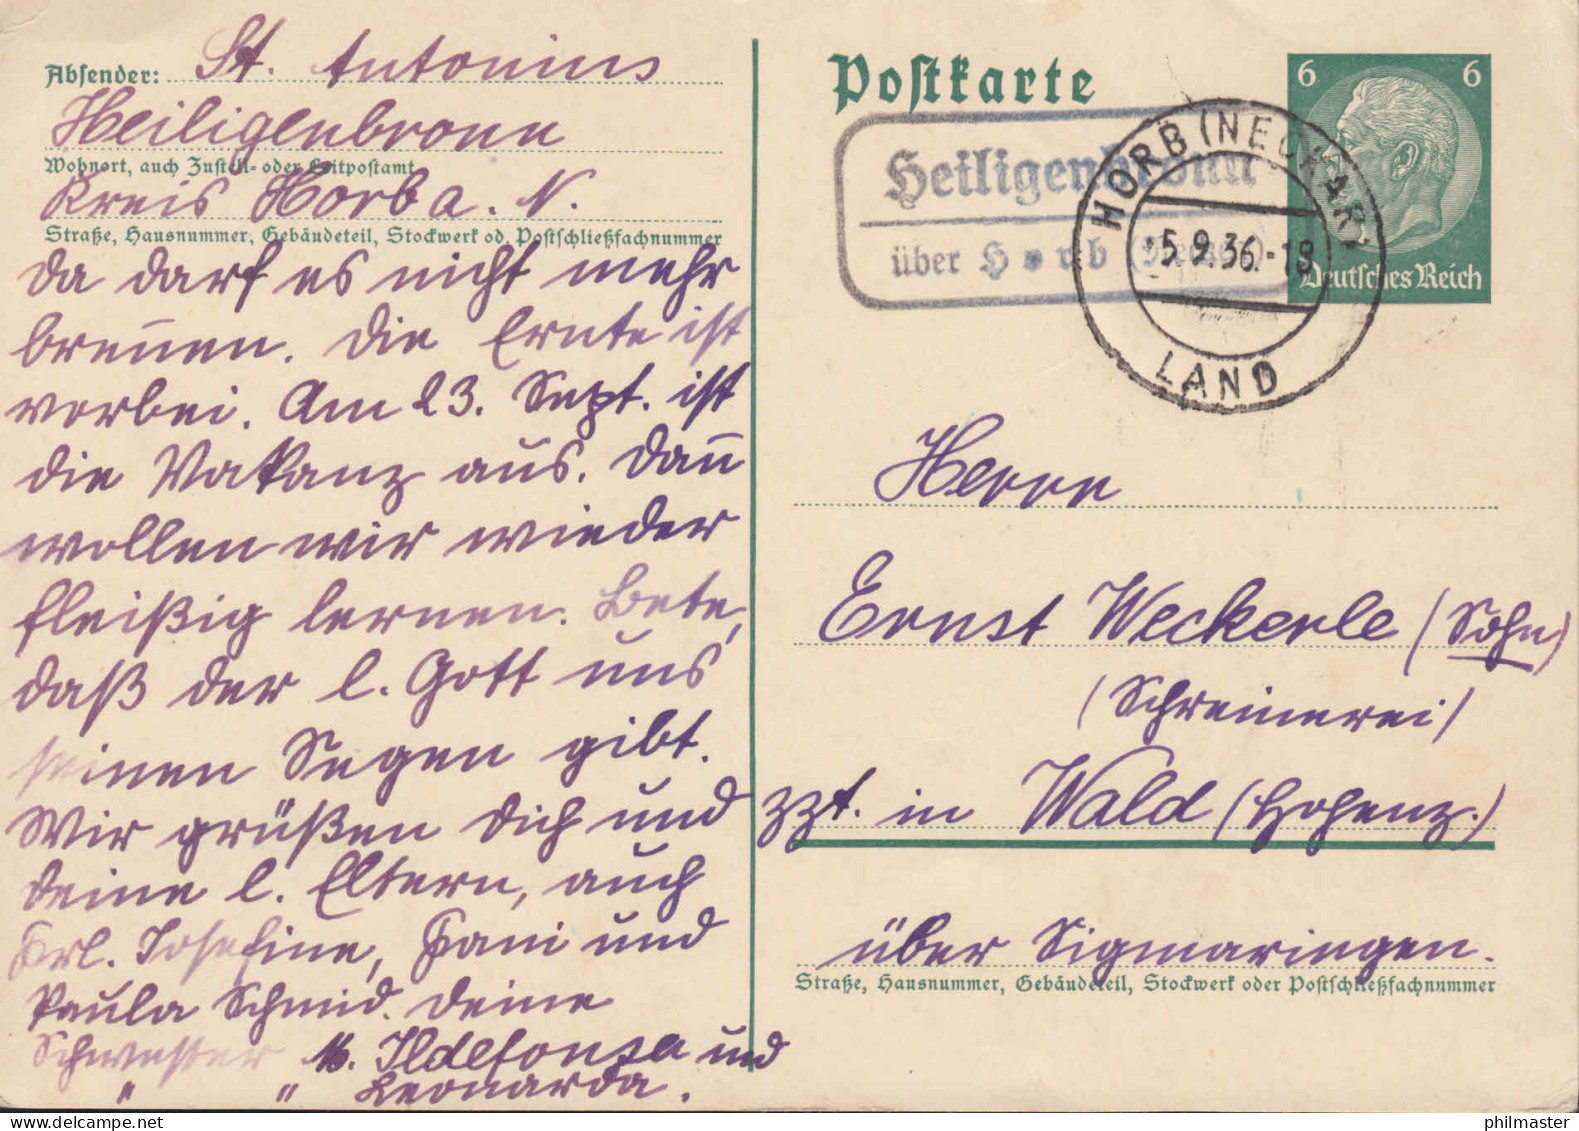 Absender: St. Antonius
Heiligenbronn
Wohnort, auch Zustell- oder Leitpostamt
Kreis Horb a. N.
Straße, Hausnummer, Gebäudeteil, Stockwerk od. Postschließfachnummer
da darf es nicht mehr
brennen. Die Ernte ist
vorbei. Am 23. Sept. ist
die Vakanz aus. Dann
wollen wir wieder
fleißig lernen. Bete,
daß der l. Gott uns
seinen Segen gibt.
Wir grüßen Dich und
deine l. Eltern, auch
Frl. Josefine, Fani und
Paula Schmid. Deine
Schwester M. Ildefonsa und
" " Leonarda.
Postkarte
6 6
Deutsches Reich
Heiligenbronn
über Horb (Neckar)
HORB (NECKAR)
5.9.36.-18
LAND
Herrn
Ernst Weckerle (Sohn)
(Schreinerei)
zzt. in Wald (Hohenz.)
über Sigmaringen.
Straße, Hausnummer, Gebäudeteil, Stockwerk oder Postschließfachnummer
philmaster